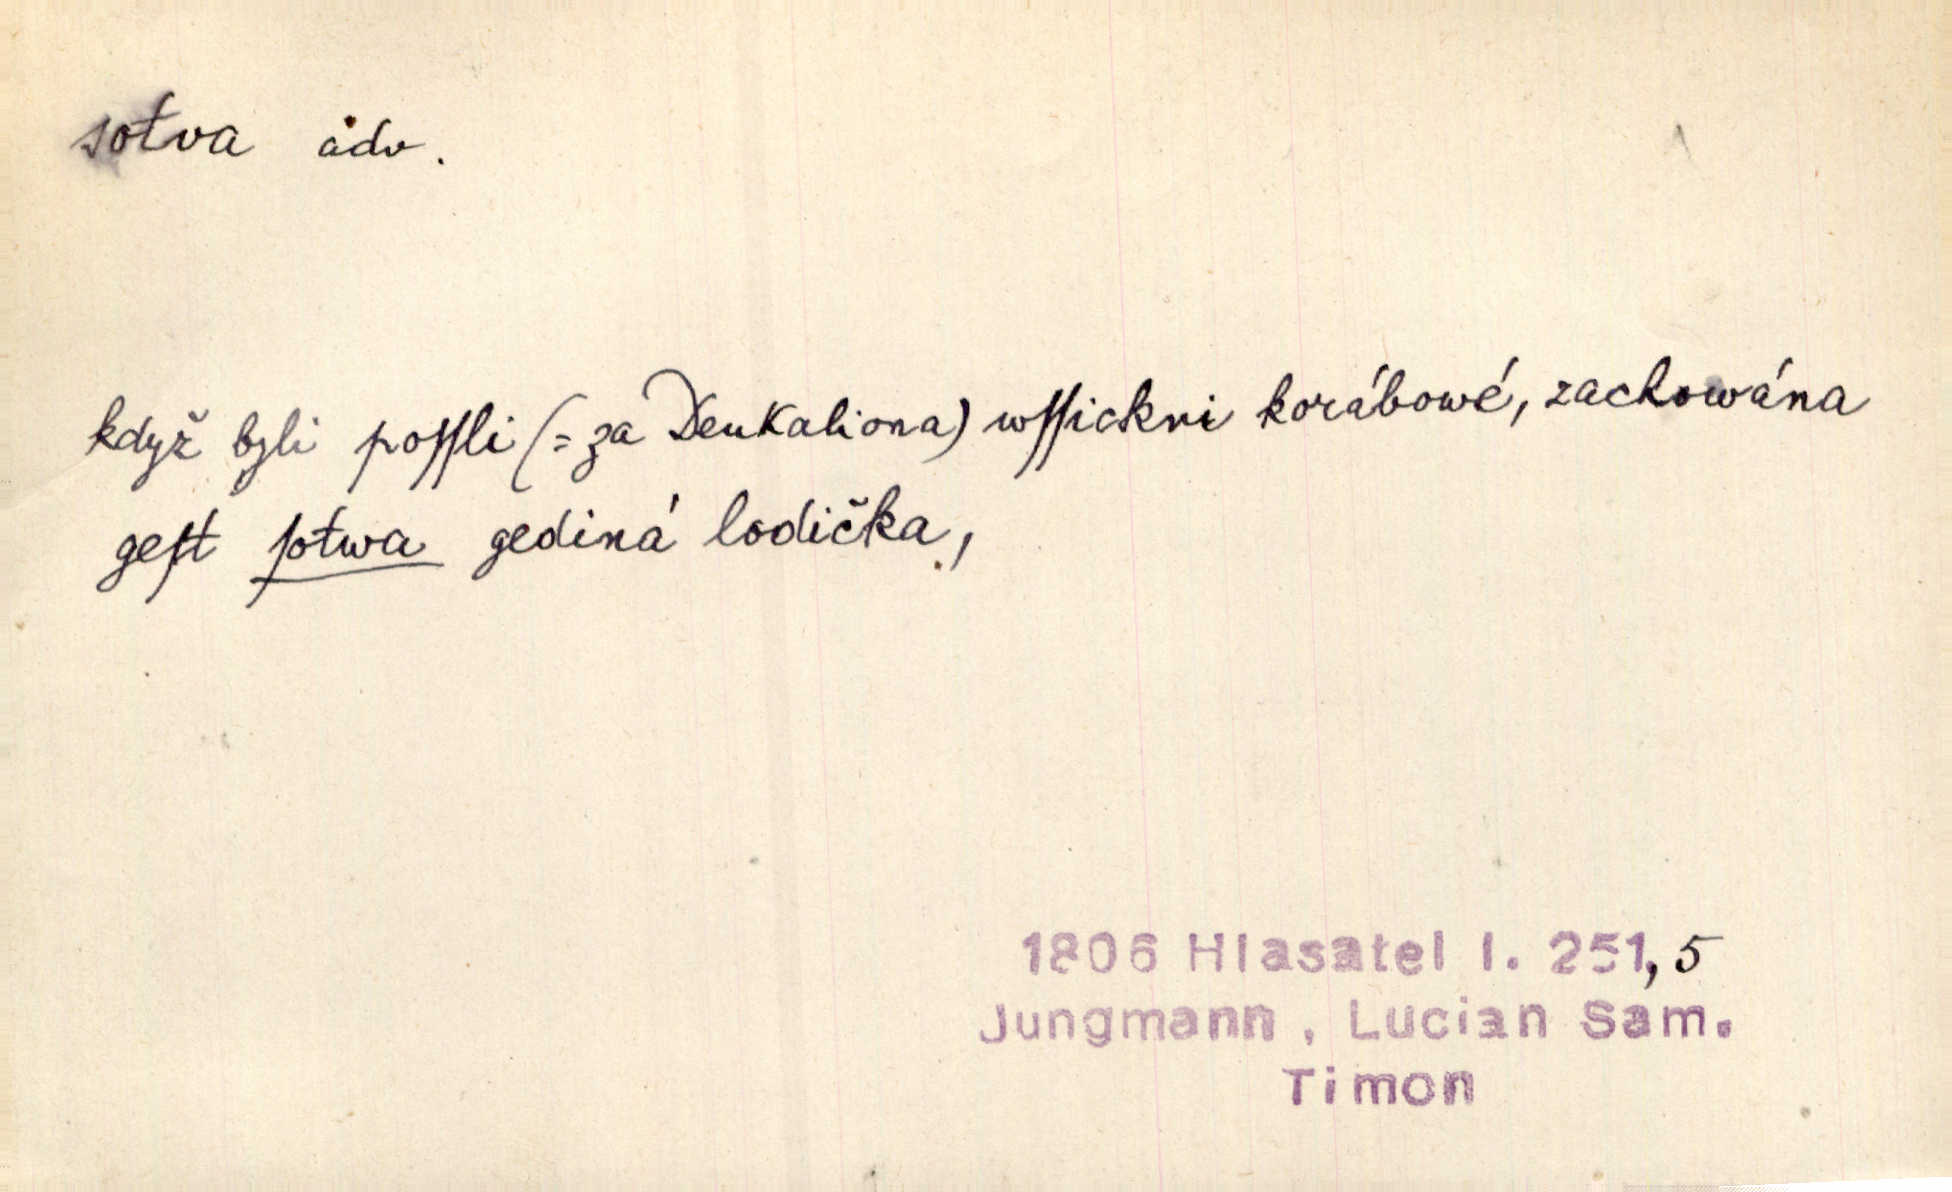 sotva adv.
když byli poſſli (= za Deukaliona) wſſickni korábowé, zachowána
geſt ſotwa gediná lodička,
1806 Hlasatel I. 251,5
Jungmann, Lucian Sam.
Timon